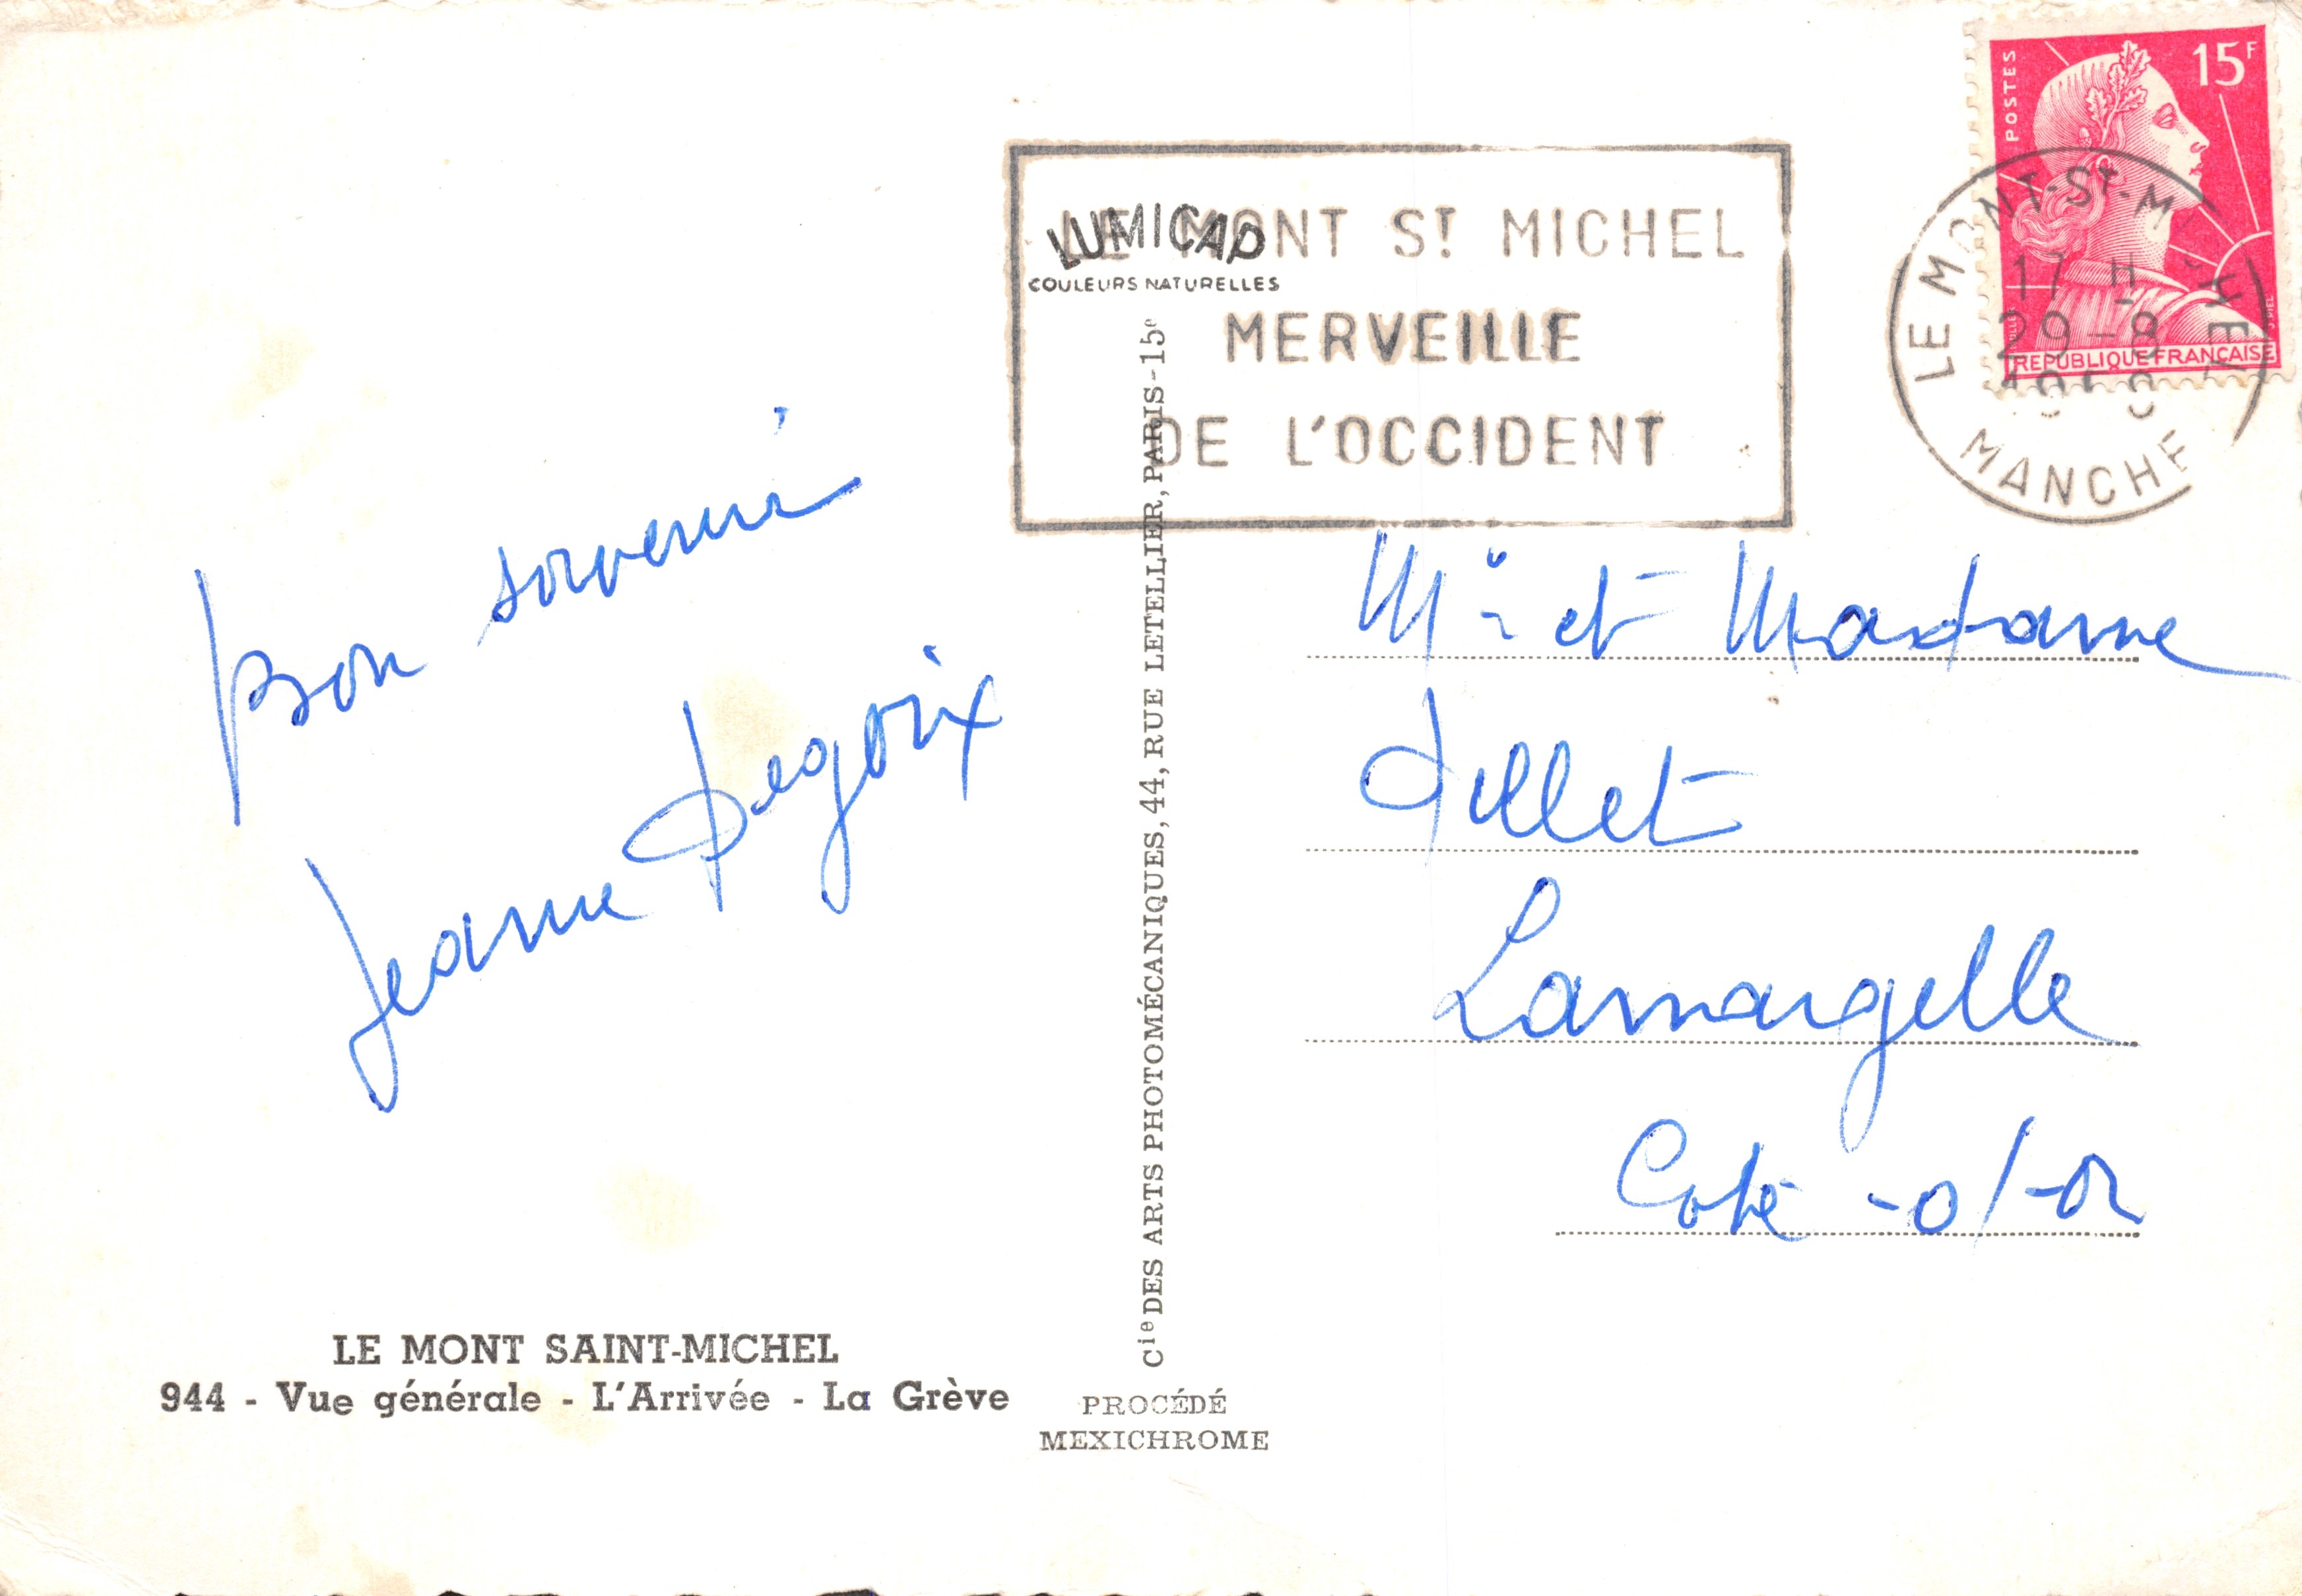 Bon souvenir
Jeanne Degoix
LE MONT SAINT-MICHEL
944 - Vue générale - L'Arrivée - La Grève
LUMICAP
COULEURS NATURELLES
Cie DES ARTS PHOTOMÉCANIQUES, 44, RUE LETELLIER, PARIS - 15e
PROCÉDÉ
MEXICHROME
LE MONT ST MICHEL
MERVEILLE
DE L'OCCIDENT
POSTES
15F
REPUBLIQUE FRANÇAISE
LE MONT-ST-MICHEL
17 H
29-8
MANCHE
Mr et Madame
Lamargelle
Cote -d'-or